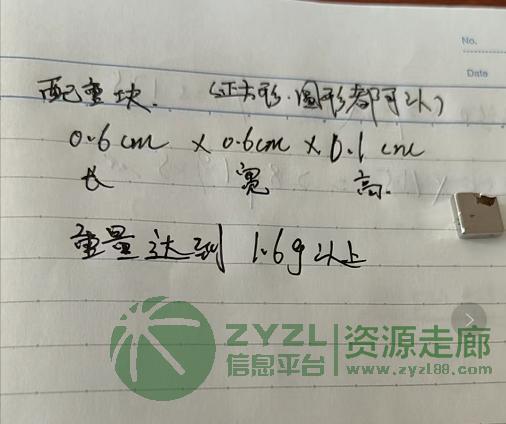 No.
Date
配重块. (正方形.圆形都可以)
0.6cm × 0.6cm × 0.1cm
长 宽 高.
重量达到 1.6g以上
ZYZL 资源走廊
信息平台 www.zyzl88.com